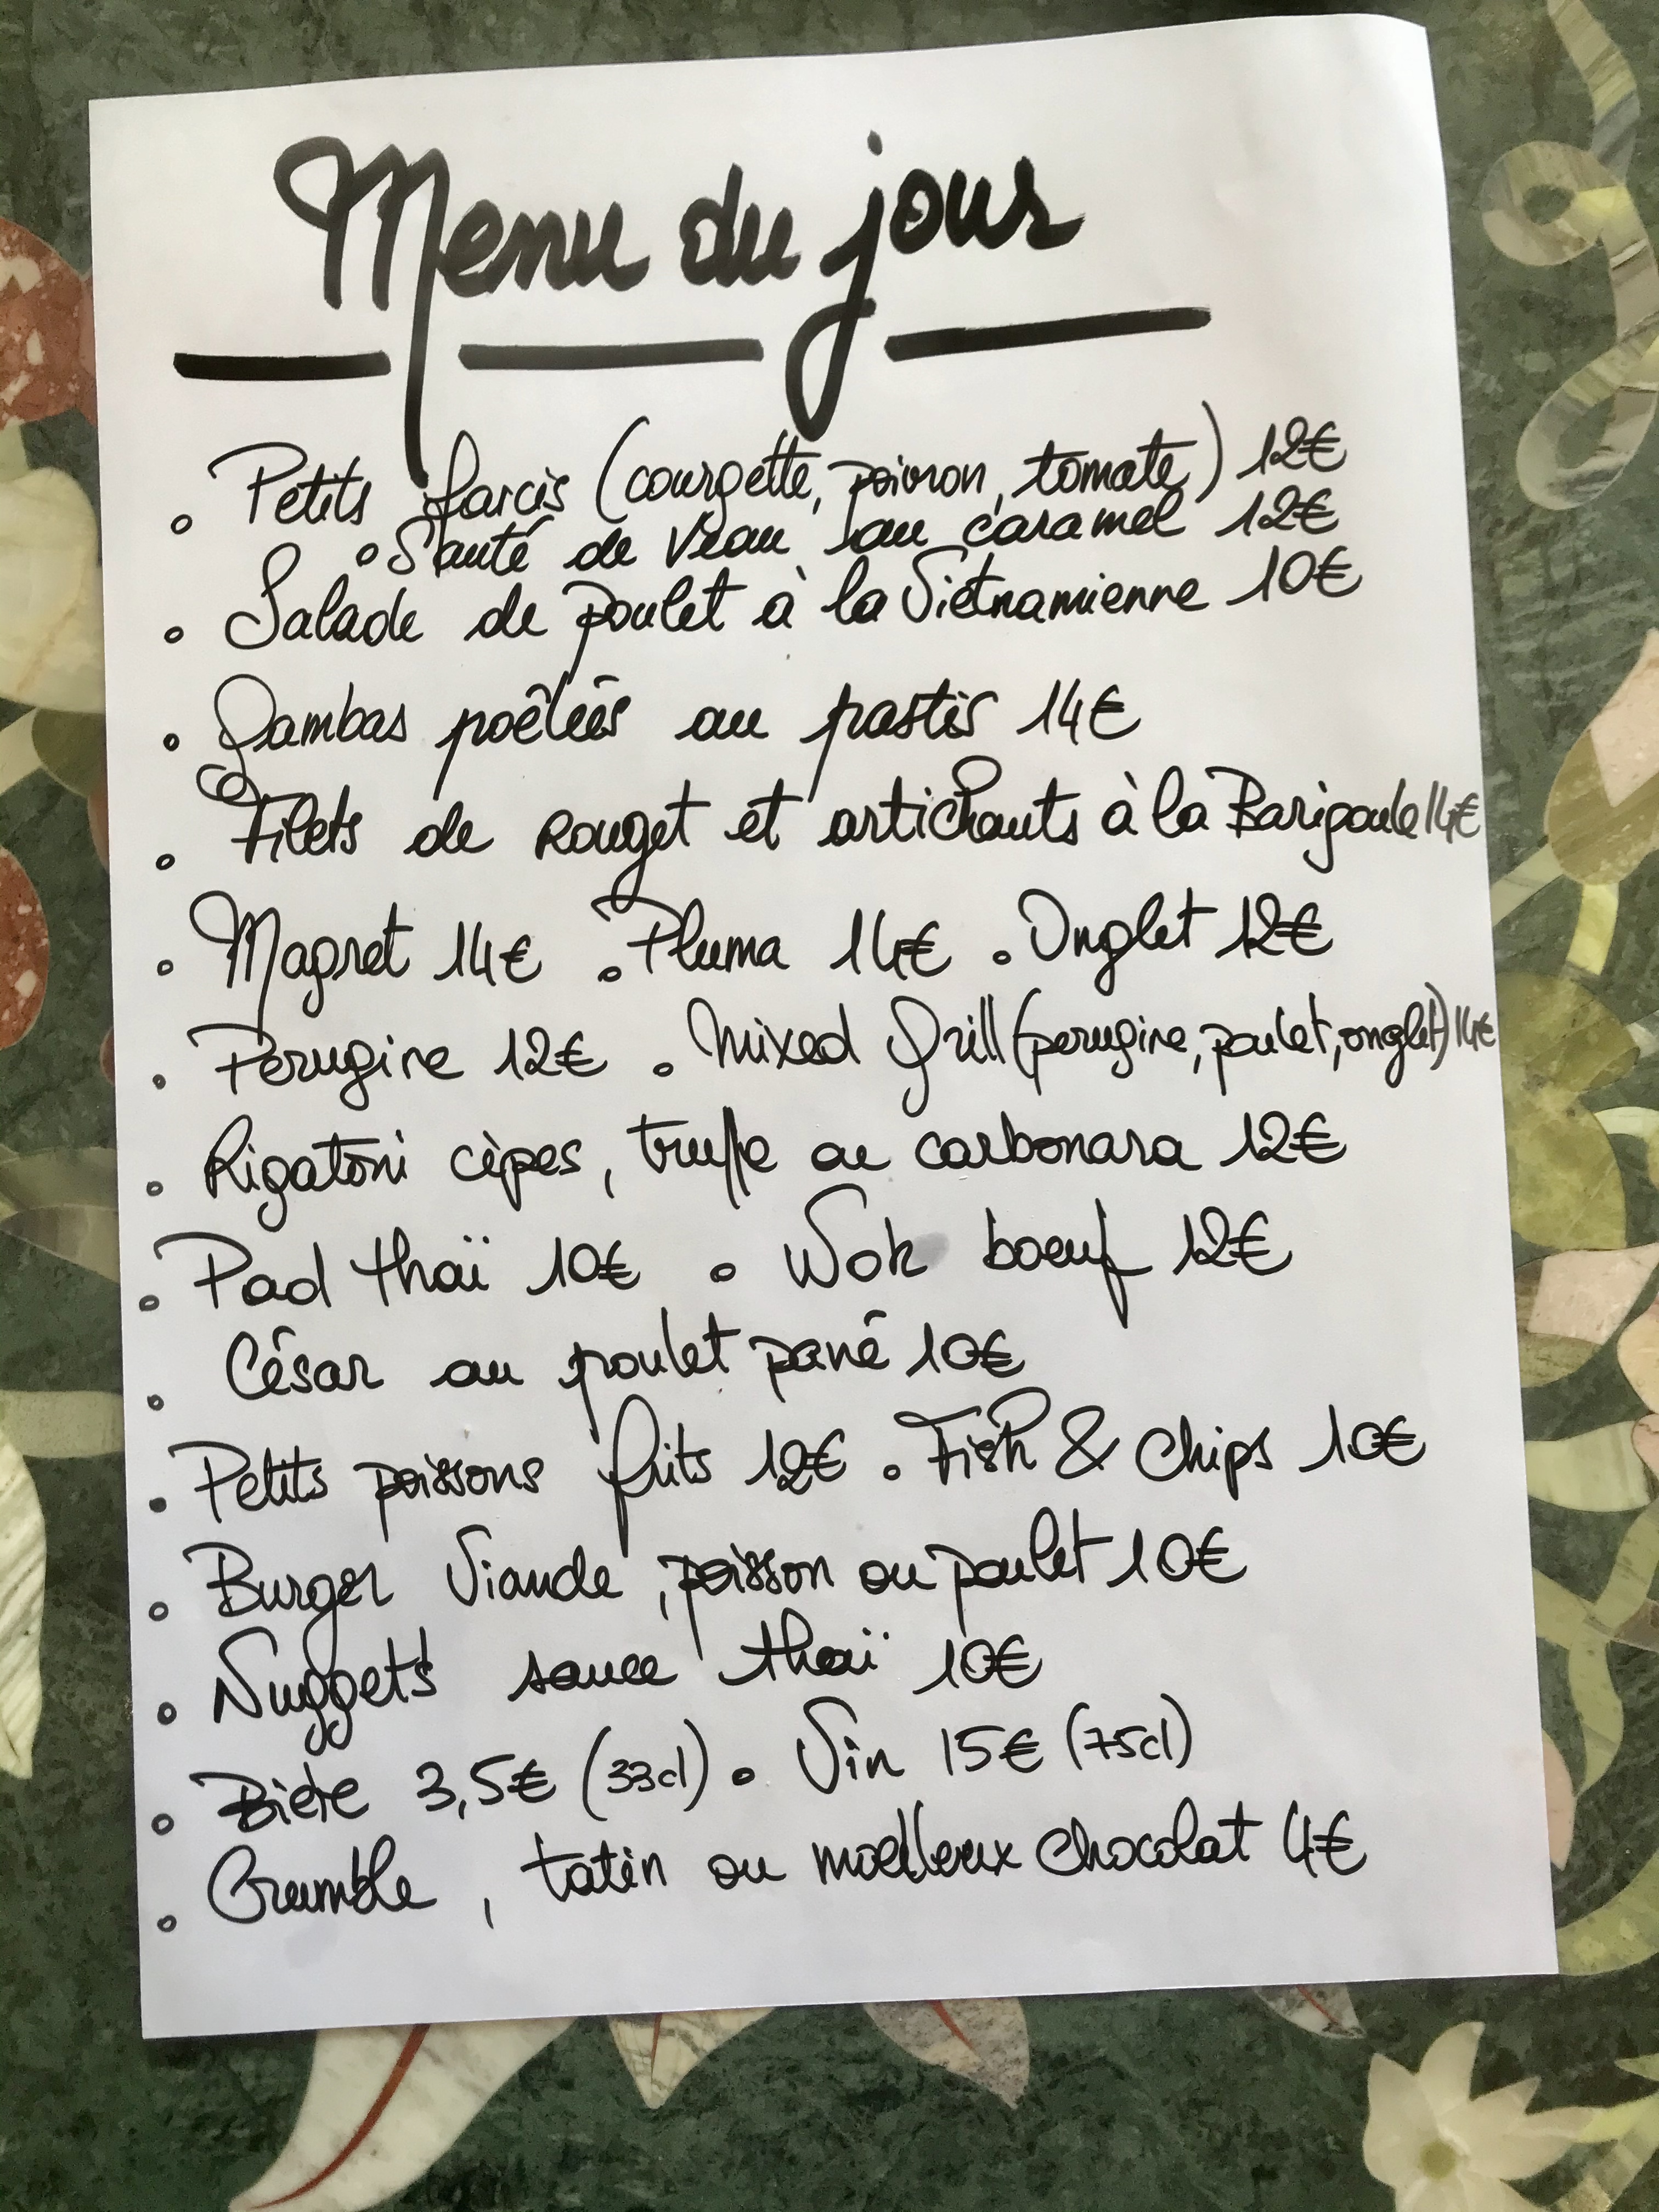 Menu du jour
• Petits farcis (courgette, poivron, tomate) 12€
• Sauté de veau au caramel 12€
• Salade de poulet à la Vietnamienne 10€
• Gambas poêlées au pastis 14€
• Filets de rouget et artichauts à la Barigoule 14€
• Magret 14€ • Pluma 14€ • Onglet 12€
• Perugine 12€ • Mixed Grill (perugine, poulet, onglet) 14€
• Rigatoni cèpes, truffe ou carbonara 12€
• Pad thaï 10€ • Wok boeuf 12€
• César au poulet pané 10€
• Petits poissons frits 12€ • Fish & Chips 10€
• Burger Viande, poisson ou poulet 10€
• Nuggets sauce thaï 10€
• Bière 3,5€ (33cl) • Vin 15€ (75cl)
• Crumble, tatin ou moelleux chocolat 4€